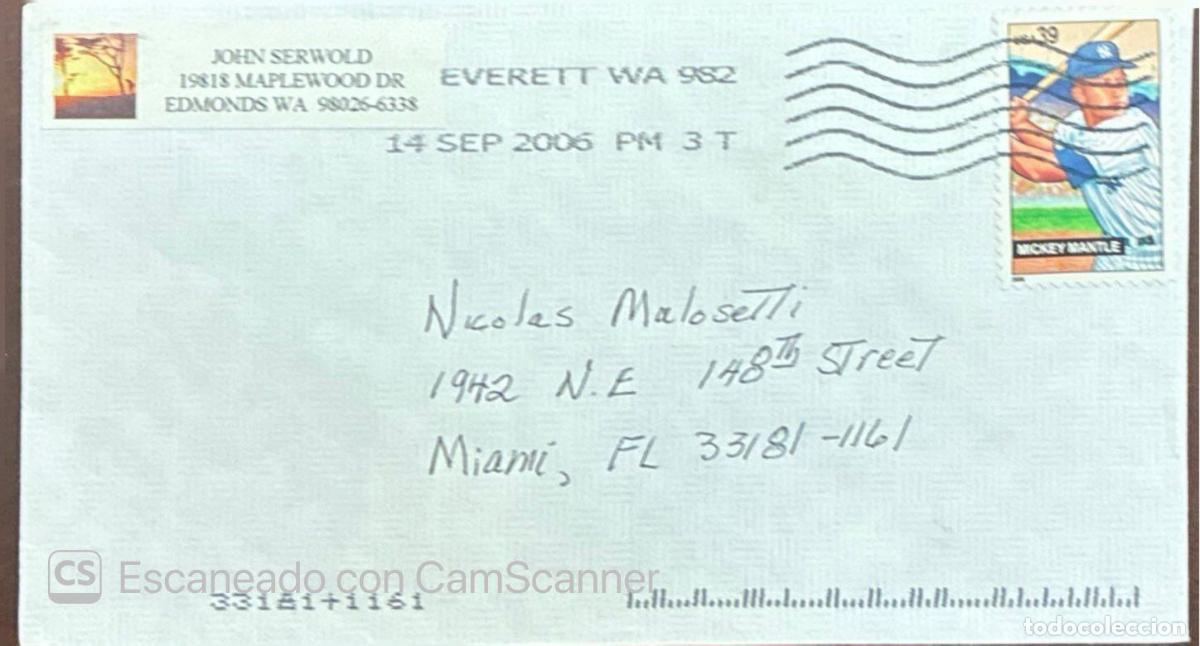 JOHN SERWOLD
19818 MAPLEWOOD DR
EDMONDS WA 98026-6338
EVERETT WA 982
14 SEP 2006 PM 3 T
USA 39
MICKEY MANTLE
Nicolas Malosetti
1942 N.E 148TH Street
Miami, FL 33181-1161
CS Escaneado con CamScanner
33181+1161
todocoleccion